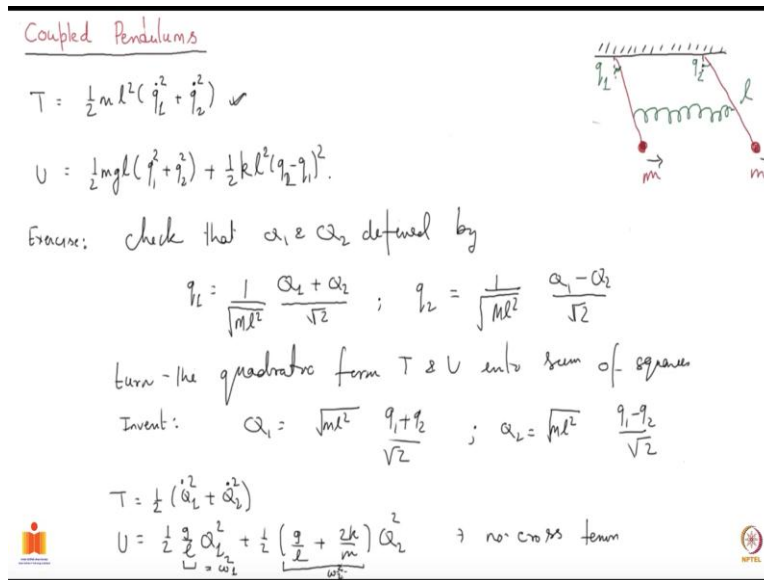 Coupled Pendulums
T = ½ m l² ( q̇₁² + q̇₂² ) ✓
U = ½ mgl ( q₁² + q₂² ) + ½ k l² (q₂ - q₁)².
q₁
q₂
l
m
m
Exercise: check that Q₁ & Q₂ defined by
q₁ = 1/√(ml²) (Q₁ + Q₂)/√2 ; q₂ = 1/√(ml²) (Q₁ - Q₂)/√2
turn the quadratic form T & U into sum of squares
Invert: Q₁ = √(ml²) (q₁ + q₂)/√2 ; Q₂ = √(ml²) (q₁ - q₂)/√2
T = ½ ( Q̇₁² + Q̇₂² )
U = ½ g/l Q₁² + ½ ( g/l + 2k/m ) Q₂² → no cross term
= ω₁² ω₂²
NPTEL